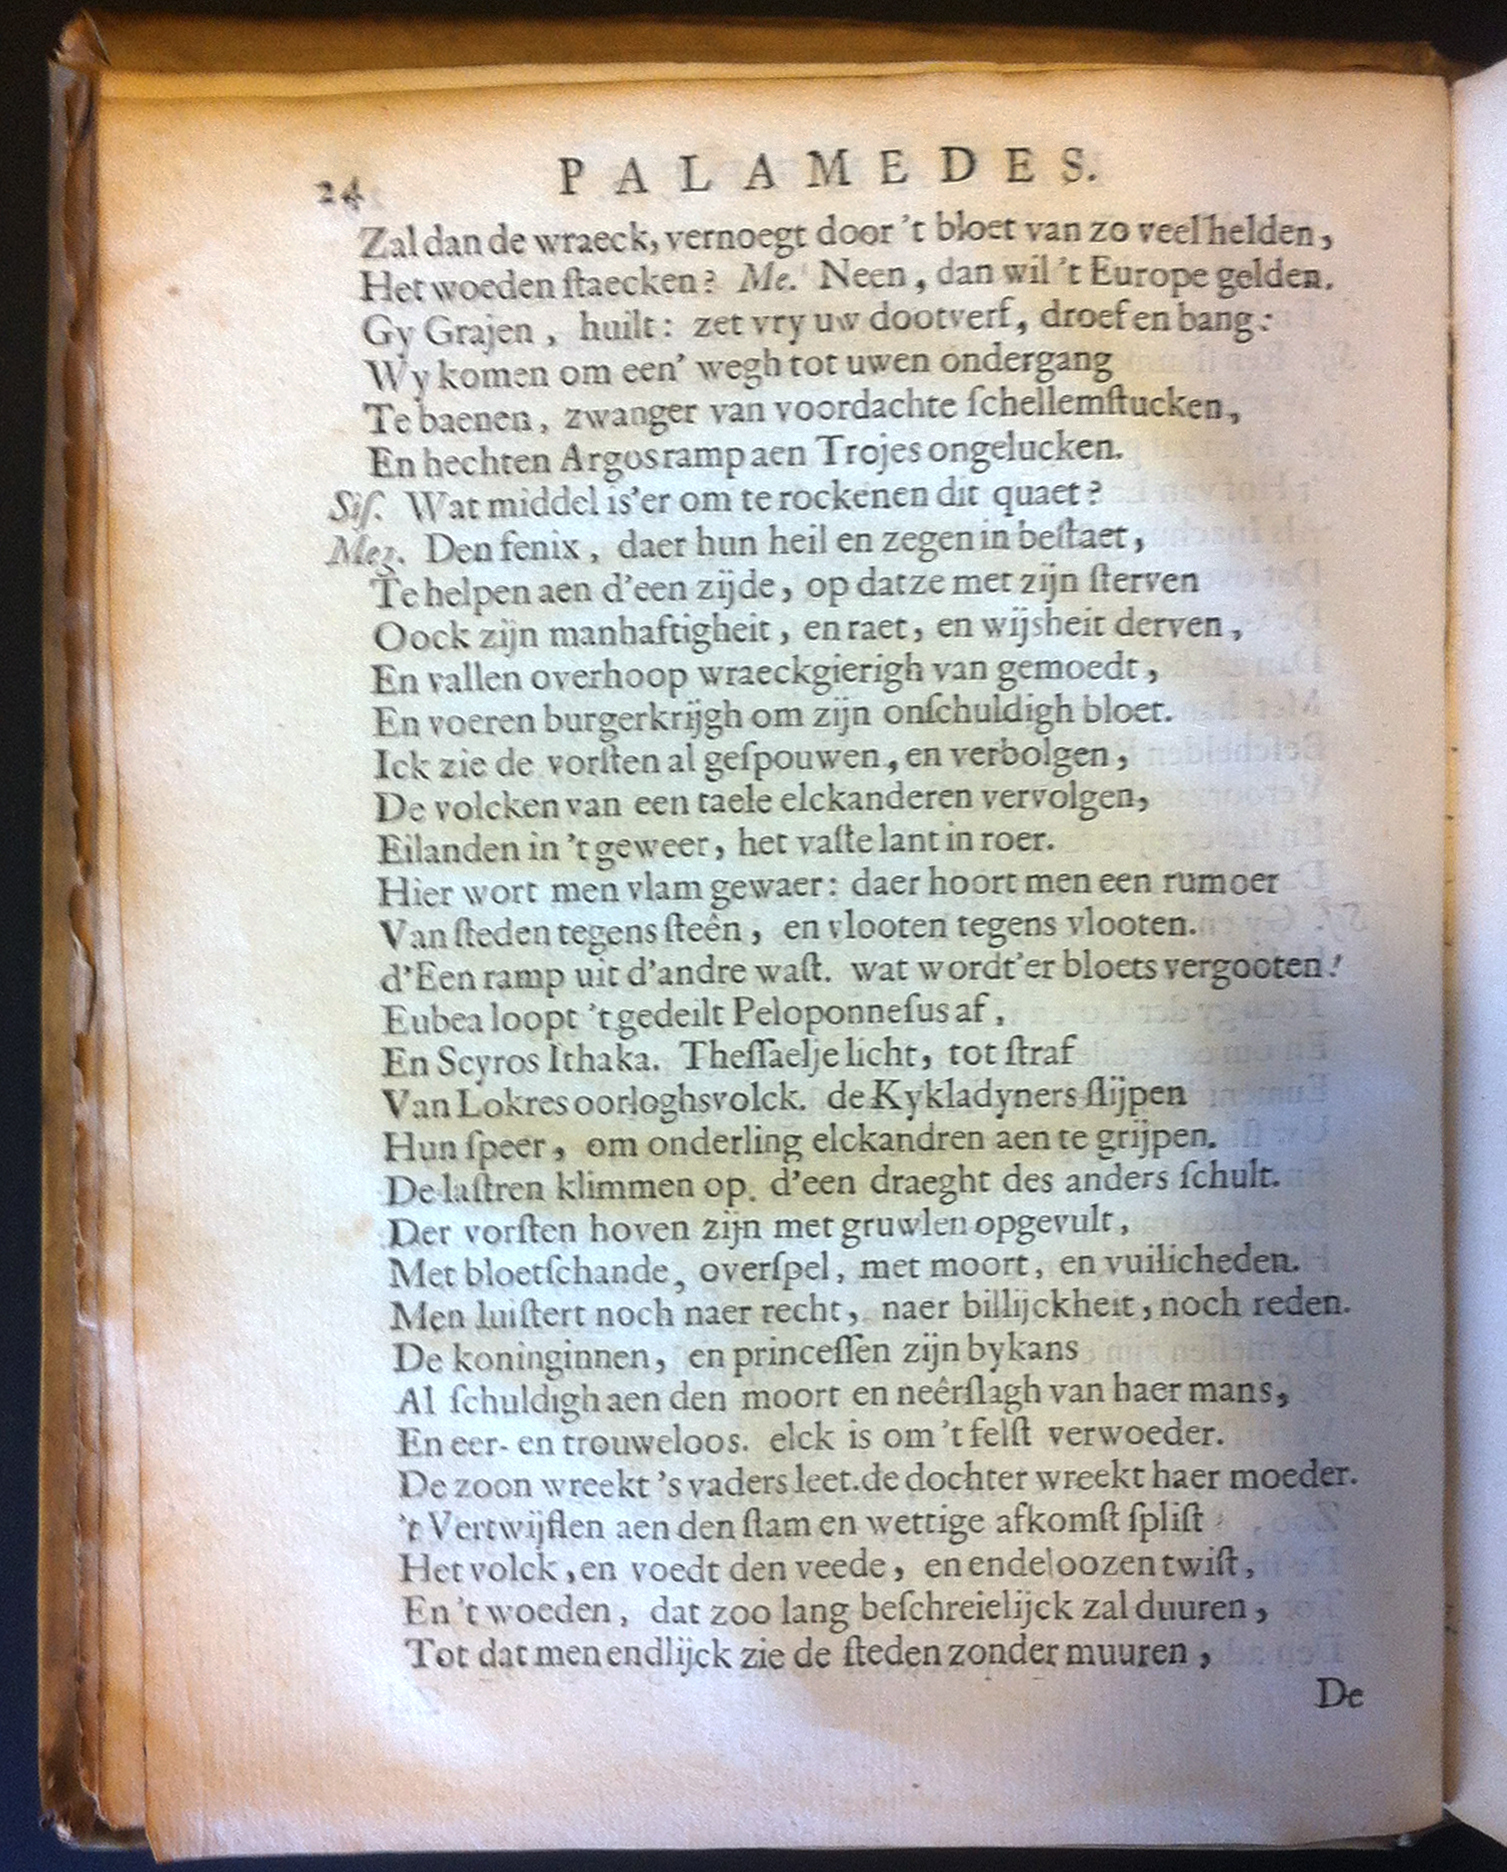 24 PALAMEDES.
Zal dan de wraeck, vernoegt door 't bloet van zo veel helden,
Het woeden ſtaecken? Me. Neen, dan wil 't Europe gelden.
Gy Grajen, huilt: zet vry uw dootverf, droef en bang:
Wy komen om een' wegh tot uwen ondergang
Te baenen, zwanger van voordachte ſchellemſtucken,
En hechten Argos ramp aen Trojes ongelucken.
Siſ. Wat middel is'er om te rockenen dit quaet?
Meg. Den fenix, daer hun heil en zegen in beſtaet,
Te helpen aen d'een zijde, op datze met zijn ſterven
Oock zijn manhaftigheit, en raet, en wijsheit derven,
En vallen overhoop wraeckgierigh van gemoedt,
En voeren burgerkrijgh om zijn onſchuldigh bloet.
Ick zie de vorſten al geſpouwen, en verbolgen,
De volcken van een taele elckanderen vervolgen,
Eilanden in 't geweer, het vaſte lant in roer.
Hier wort men vlam gewaer: daer hoort men een rumoer
Van ſteden tegens ſteên, en vlooten tegens vlooten.
d'Een ramp uit d'andre waſt. wat wordt'er bloets vergooten!
Eubea loopt 't gedeilt Peloponneſus af,
En Scyros Ithaka. Theſſaelje licht, tot ſtraf
Van Lokres oorloghsvolck. de Kykladyners ſlijpen
Hun ſpeer, om onderling elckandren aen te grijpen.
De laſtren klimmen op. d'een draeght des anders ſchult.
Der vorſten hoven zijn met gruwlen opgevult,
Met bloetſchande, overſpel, met moort, en vuilicheden.
Men luiſtert noch naer recht, naer billijckheit, noch reden.
De koninginnen, en princeſſen zijn bykans
Al ſchuldigh aen den moort en neêrſlagh van haer mans,
En eer- en trouweloos. elck is om 't felſt verwoeder.
De zoon wreekt 's vaders leet. de dochter wreekt haer moeder.
't Vertwijflen aen den ſtam en wettige afkomſt ſpliſt
Het volck, en voedt den veede, en endeloozen twiſt,
En 't woeden, dat zoo lang beſchreielijck zal duuren,
Tot dat men endlijck zie de ſteden zonder muuren,
De